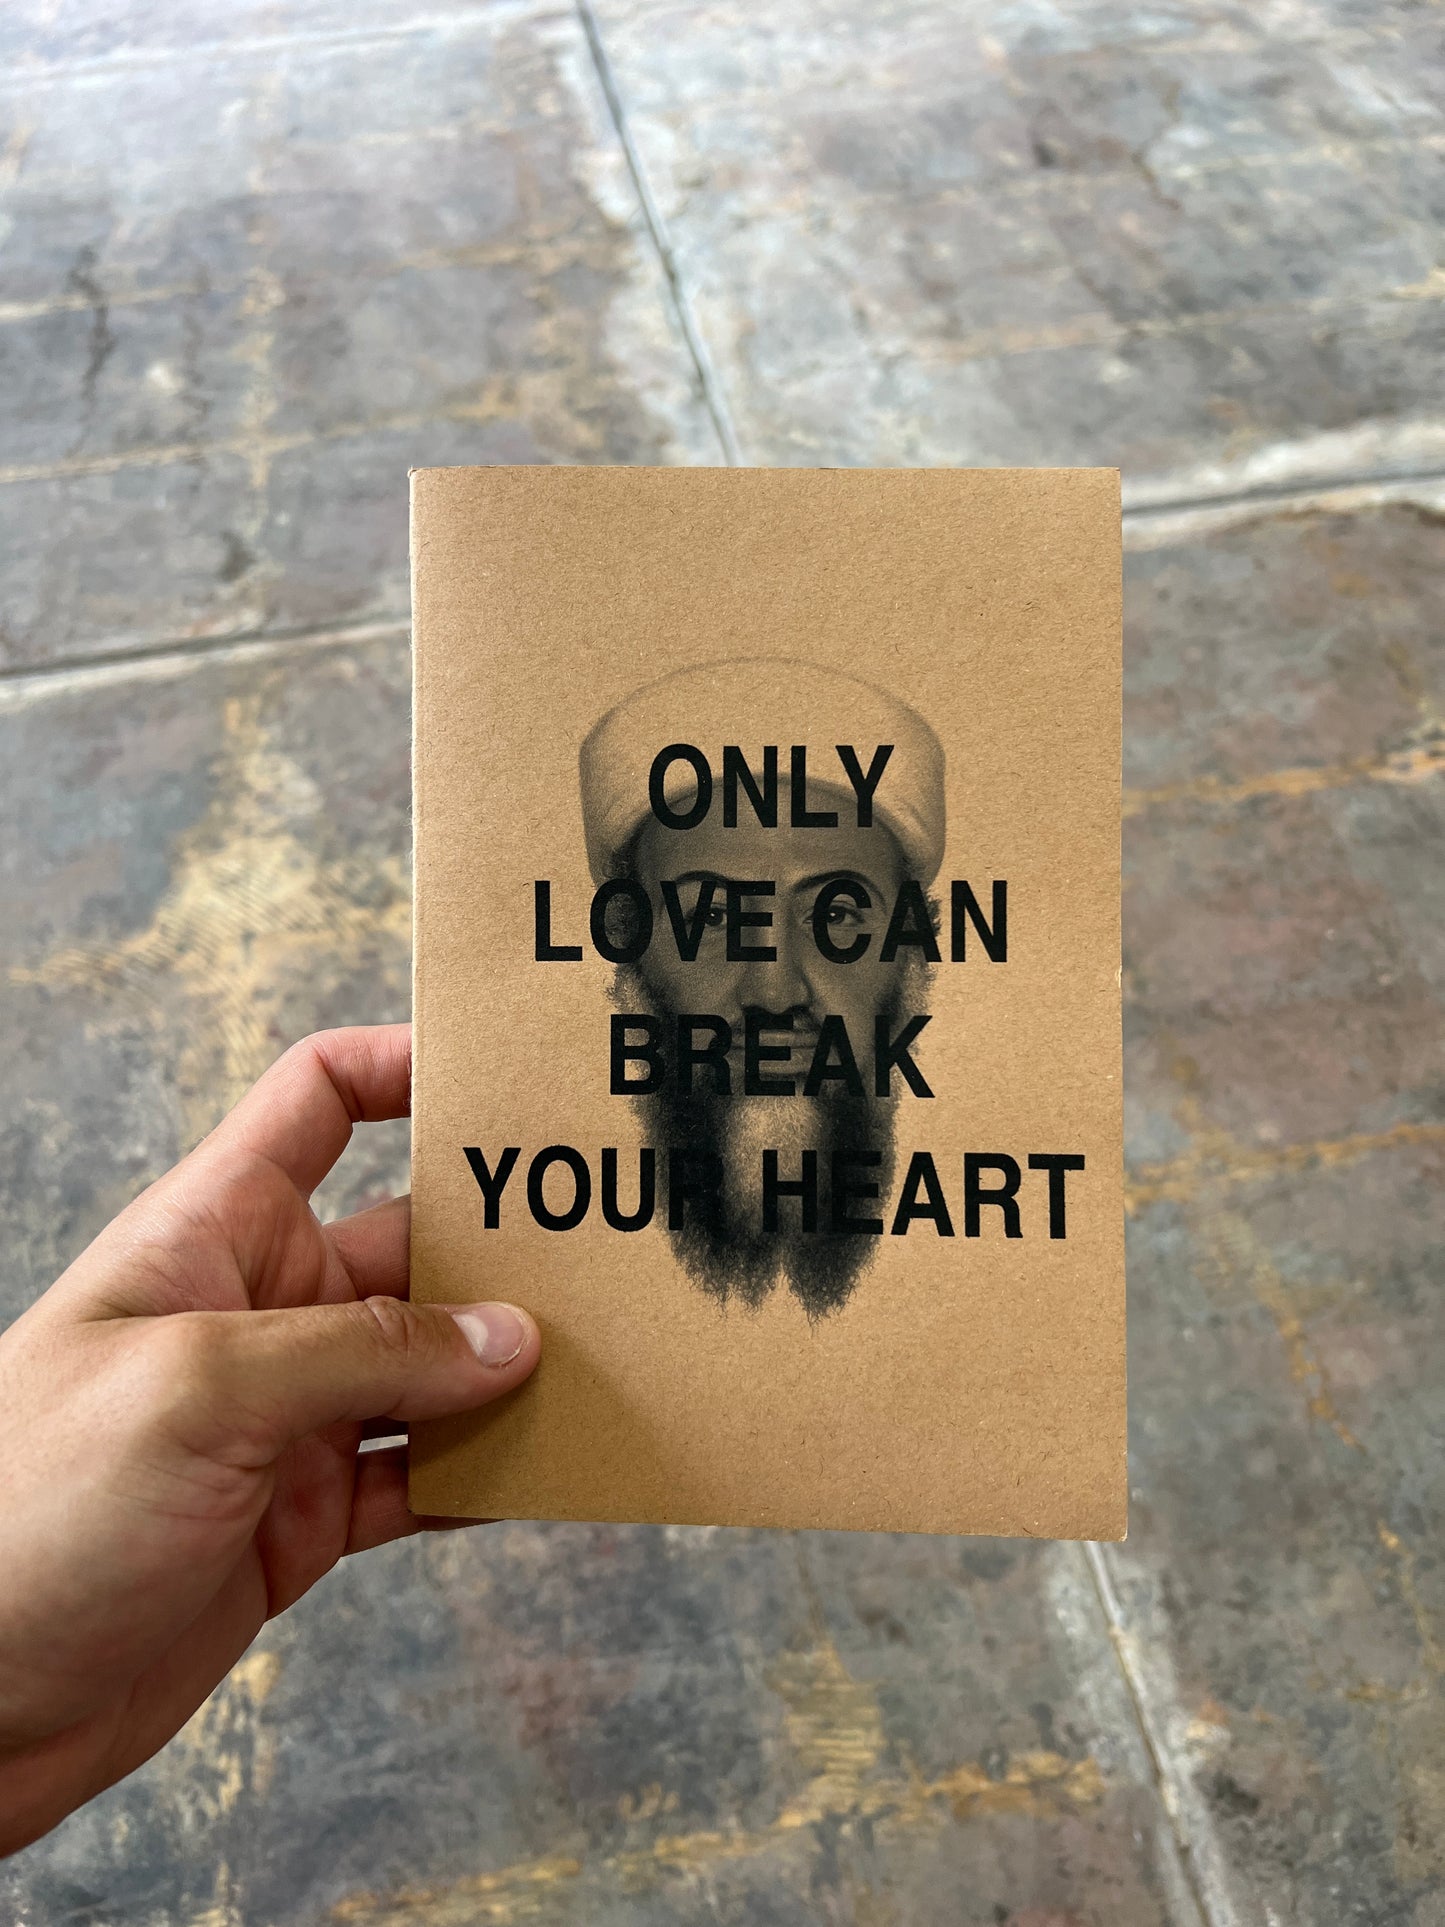 ONLY
LOVE CAN
BREAK
YOUR HEART